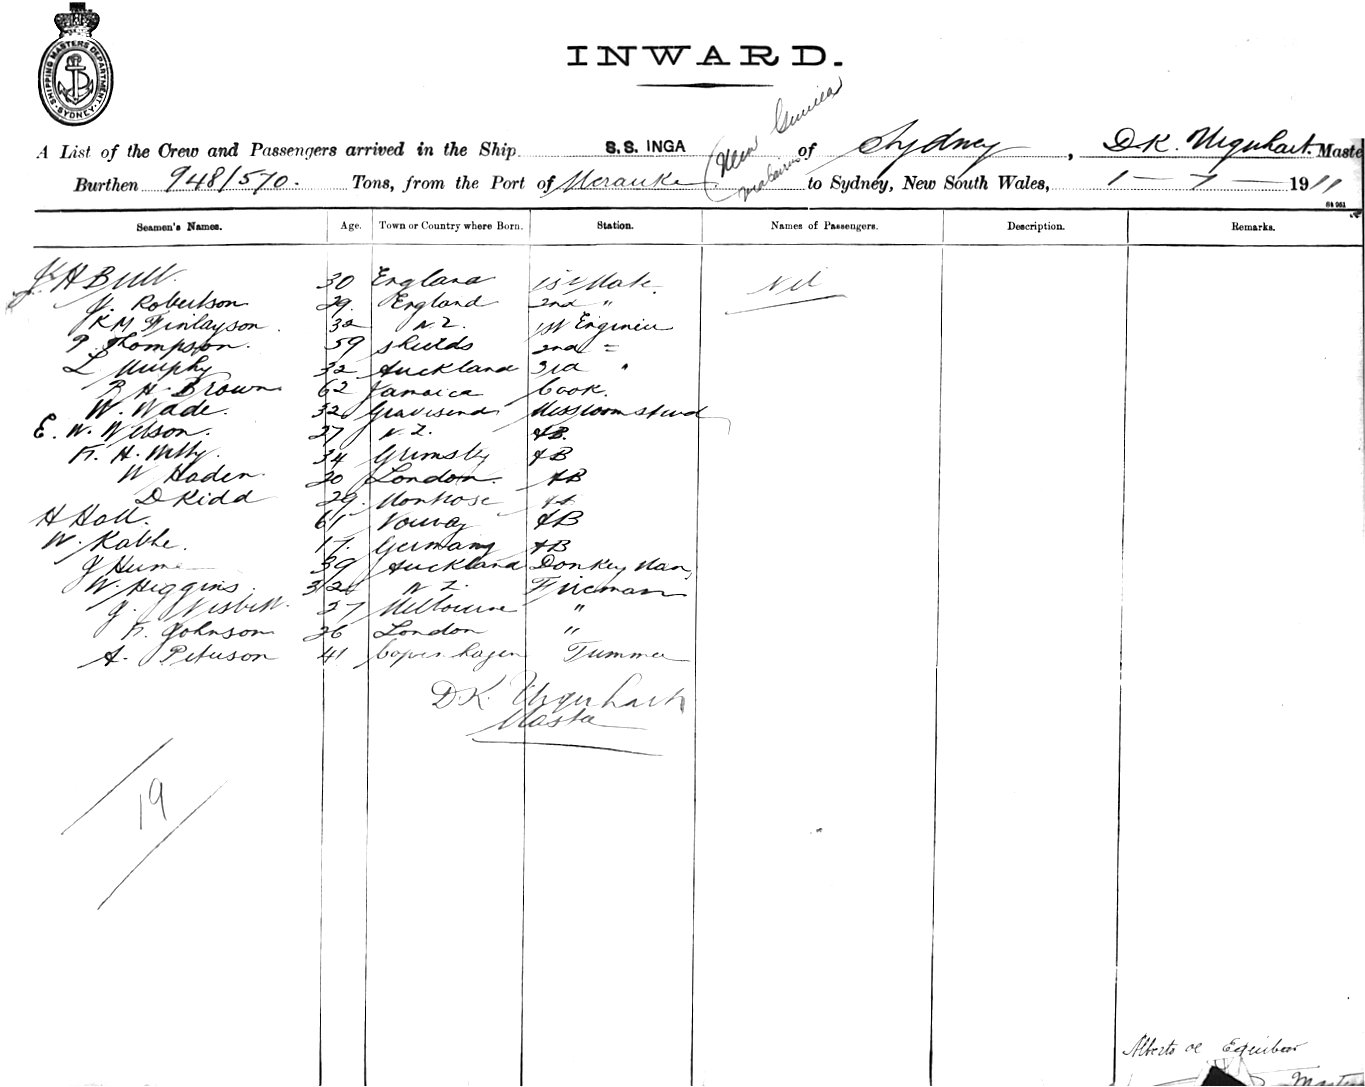 SHIPPING MASTERS DEPARTMENT
SYDNEY
INWARD.
A List of the Crew and Passengers arrived in the Ship S.S. INGA (New Guinea of Sydney, D K. Urquhart. Maste
Burthen 948/570. Tons, from the Port of Merauke to Sydney, New South Wales, 1 - 7 - 1911
Seamen's Names. Age. Town or Country where Born. Station. Names of Passengers. Description. Remarks.
H Bull. 30 England 1st Mate. Nil
J. Robertson 29. England 2nd "
K M Finlayson. 32 N.Z. 1st Engineer
P. Thompson. 59 Shields 2nd =
L Murphy 32 Auckland 3rd "
R H. Brown 62 Jamaica Cook.
W. Wade. 32 Gravesend Messroom Steward
E. W. Wilson. 27 N.Z. AB.
H. 34 Grimsby AB
W Haden. 20 London. AB
D Kidd 29. Montrose
H Hall. 61 Norway AB
W. Rathe. 17. Germany AB
J Hume 39 Auckland Donkey Man
W. Higgins. 32 N Z. Fireman
J. Nisbett. 27 Melbourne "
Johnson 26 London "
A. Peterson 41 Copenhagen Trimmer
D.K. Urquhart
Master
19
Alberto de
Master